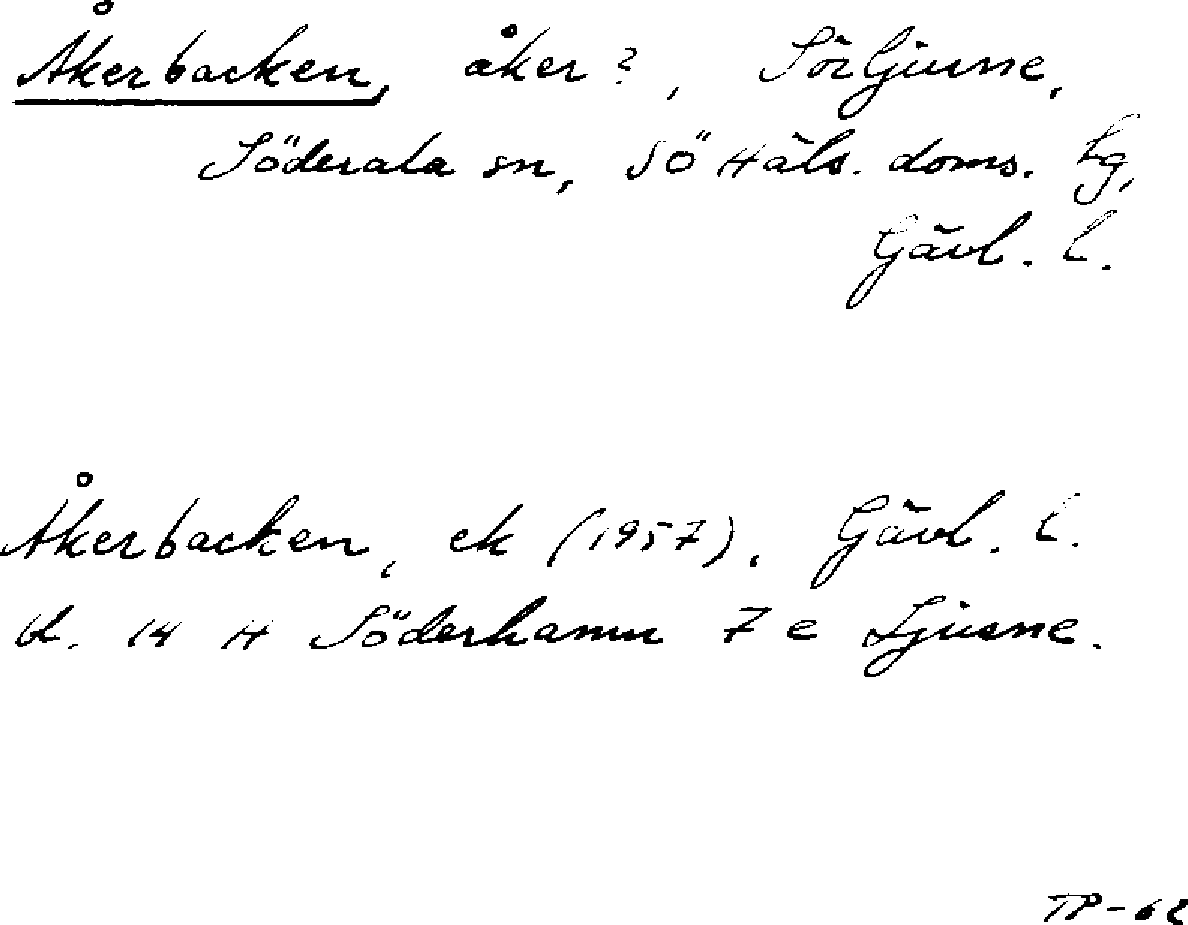 Åkerbacken, åker?, Sörljusne,
Söderala sn, Sö Häls. doms. tg,
Gävl. l.
Åkerbacken, ek (1957), Gävl. l.
bl. 14 H Söderhamn 7 e Ljusne.
TP-62